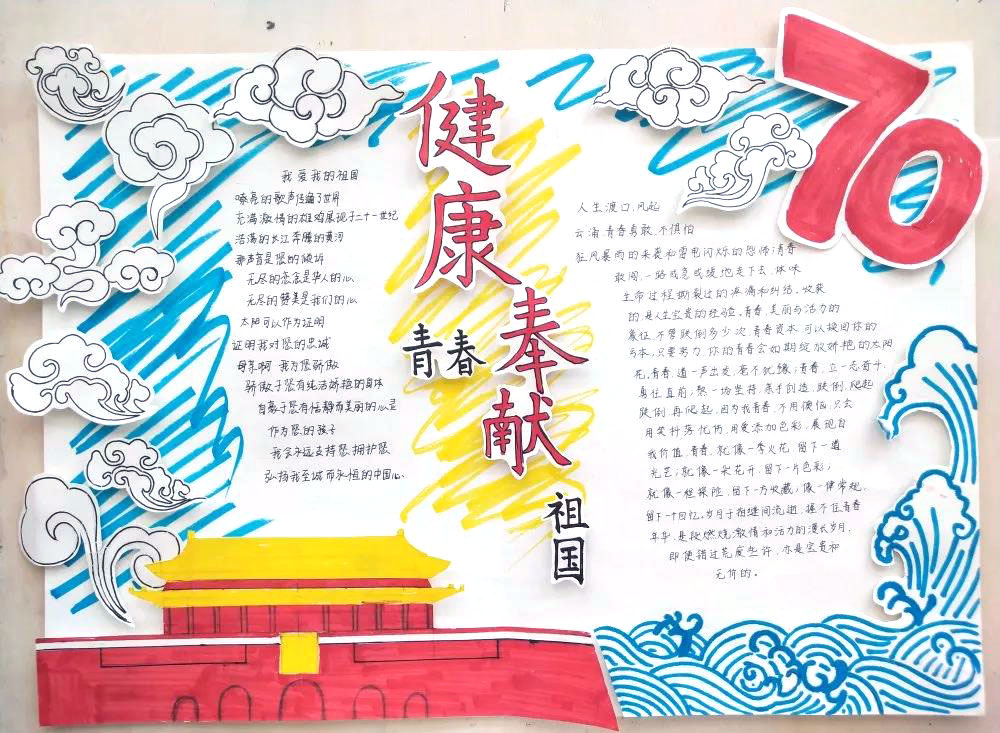 70
健康
青春
奉献
祖国
我爱我的祖国
嘹亮的歌声传遍了世界
充满激情的雄鸡展现于二十一世纪
浩荡的长江奔腾的黄河
那声音是您的倾诉
无尽的恋念是华人的心
无尽的赞美是我们的心
太阳可以作为证明
证明我对您的忠诚
母亲啊 我为您骄傲
骄傲于您有纯洁娇艳的身体
自豪于您有恬静而美丽的心灵
作为您的孩子
我会永远支持您 拥护您
弘扬我至诚而永恒的中国心.
人生渡口,风起
云涌 青春勇敢,不惧怕
狂风暴雨的来袭和雷电闪烁的恐怖,青春
敢闯,一路或急或缓地走下去,体味
生命过程撕裂过的疼痛和纠结,收获
的是人生宝贵的经验,青春,美丽与活力的
象征,不管跌倒多少次,青春资本,可以挽回你的
亏本,只要努力,你的青春会如期绽放娇艳的太阳
花,青春,道一声出发,毫不犹豫,青春,立一志奋斗,
勇往直前,聚一场坚持,亲手创造,跌倒,爬起
跌倒,再爬起,因为我青春,不用懊恼,只会
用笑抖落忧伤,用爱添加色彩,展现自
我价值,青春,就像一季火花,留下一道
光芒,就像一朵花开,留下一片色彩,
就像一程探险,留下一方收藏,像一律常规,
留下一个回忆,岁月于指缝间流逝,握不住青春
年华,是段燃烧激情和活力的漫长岁月,
即使错过荒废些许,亦是宝贵和
无价的。